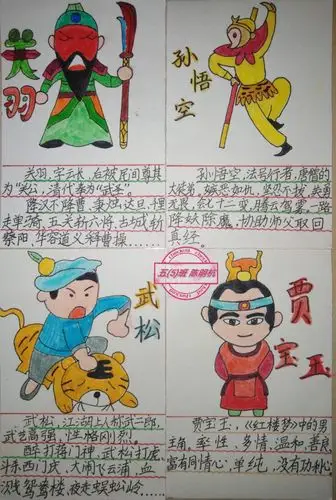 关羽
关羽，字云长，后被民间尊其
为“关公”，清代奉为“武圣”。
降汉不降曹，秉烛达旦，千里
走单骑，五关斩六将，古城斩
蔡阳，华容道义释曹操……
孙悟空
孙悟空，法号行者，唐僧的
大徒弟，嫉恶如仇，坚忍不拔，英勇
无畏，会七十二变，腾云驾雾。一路
降妖除魔，协助师父取回
真经。
五(5)班
武松
武松，江湖上人称武二郎，
武艺高强，性格刚烈。
醉打蒋门神，武松打虎，
斗杀西门氏，大闹飞云浦，血
溅鸳鸯楼，夜走蜈蚣岭……
贾宝玉
贾宝玉，《红楼梦》中的男
主角，率性，多情，温和善良，
富有同情心，单纯，没有功利心